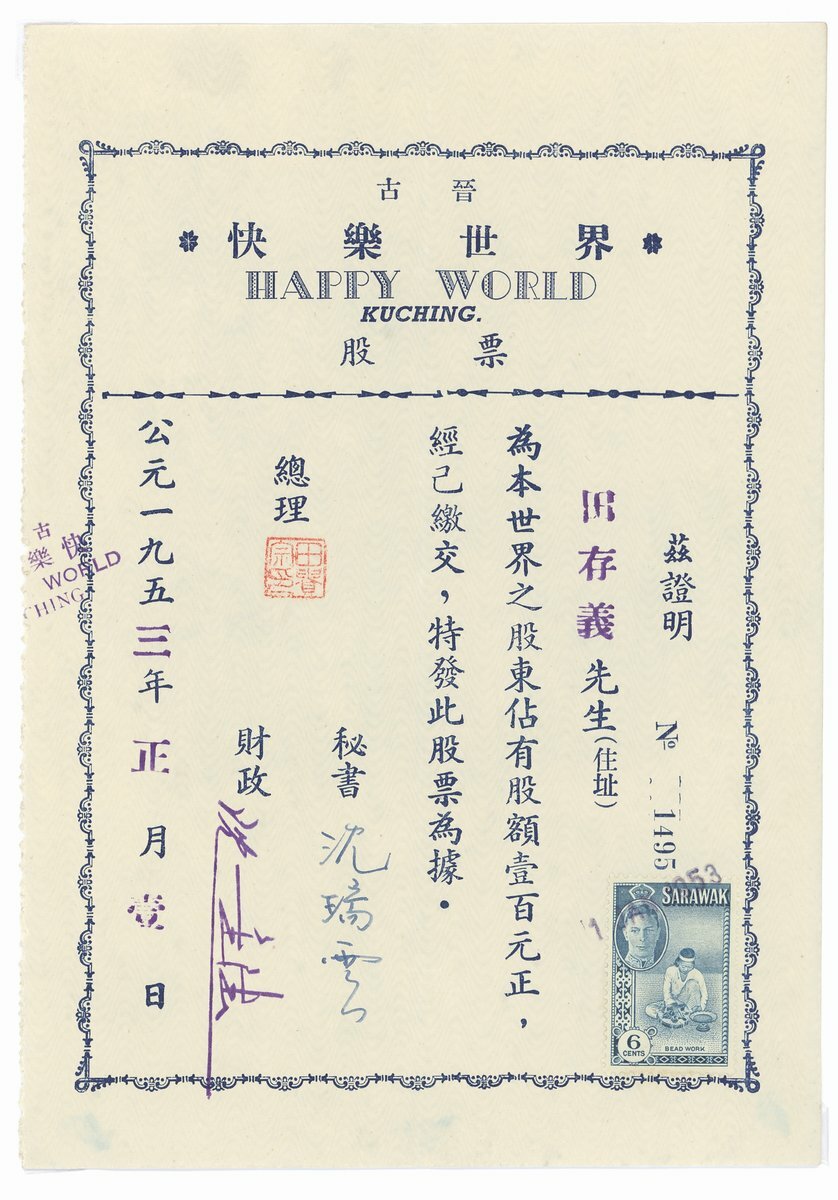 古 晉
快 樂 世 界
HAPPY WORLD
KUCHING.
股 票
茲證明
№ 1495
田存義先生(住址)
為本世界之股東佔有股額壹百元正，
經己繳交，特發此股票為據．
秘書
沈璚雲
總理
財政
公元一九五三年正月壹日
古
快樂
WORLD
CHING
SARAWAK
6
CENTS
BEAD WORK